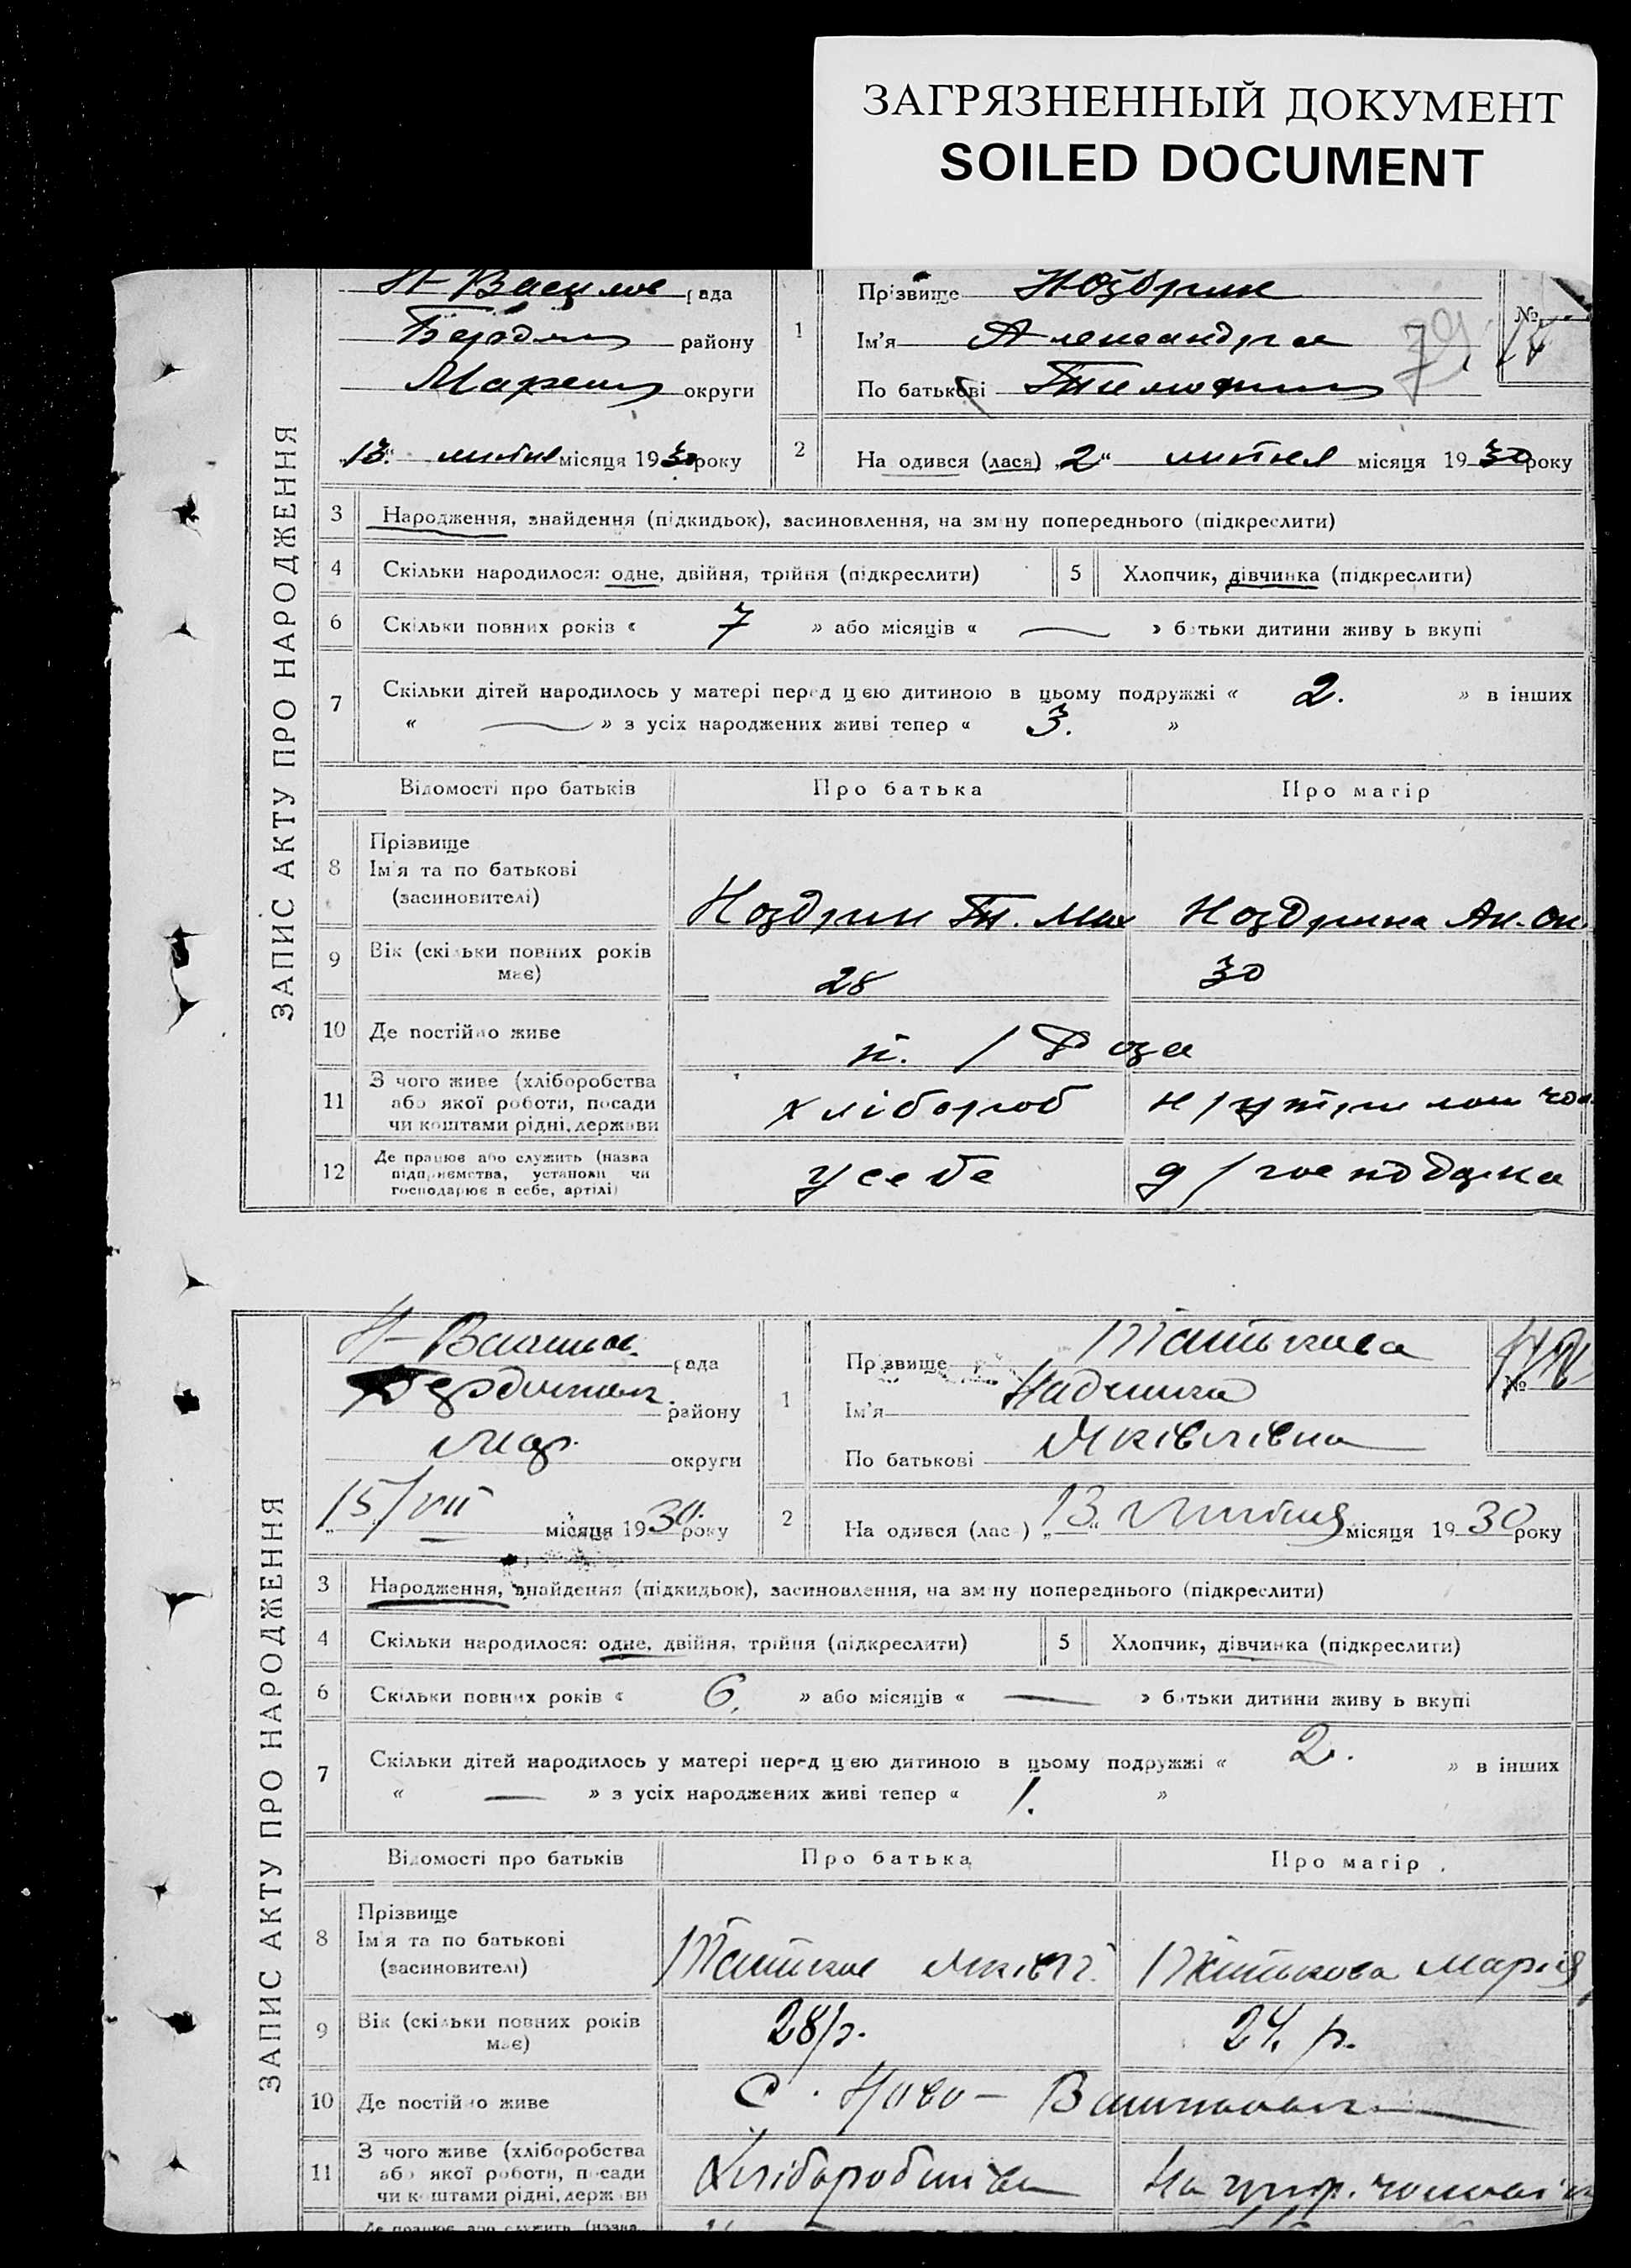 ЗАГРЯЗНЕННЫЙ ДОКУМЕНТ
SOILED DOCUMENT
ЗАПИС АКТУ ПРО НАРОДЖЕННЯ
рада
району
округи
13 липня місяця 1930 року
1
Прізвище Ноздрин
Ім'я Александра
По батькові
№
2
Народився (лася) „2“ липня місяця 1930 року
3 Народження, знайдення (підкидьок), засиновлення, на зміну попереднього (підкреслити)
4 Скільки народилося: одне, двійня, трійня (підкреслити) 5 Хлопчик, дівчинка (підкреслити)
6 Скільки повних років « 7 » або місяців « — » батьки дитини живуть вкупі
7 Скільки дітей народилось у матері перед цією дитиною в цьому подружжі « 2. » в інших
« — » з усіх народжених живі тепер « 3. »
Відомості про батьків Про батька Про матір
8 Прізвище
Ім'я та по батькові
(засиновителі)
Ноздрин Т. Мих Ноздрина Ак.
9 Вік (скільки повних років має) 28 30
10 Де постійно живе
11 З чого живе (хліборобства
або якої роботи, посади
чи коштами рідні, держави
хлібороб
12 Де працює або служить (назва
підприємства, установи чи
господарює в себе, артілі)
у себе д/господарка
ЗАПИС АКТУ ПРО НАРОДЖЕННЯ
рада
району
Мар. округи
15/VII місяця 1930 року
1
Прізвище
Ім'я
По батькові Яківлівна
№
2
Народився (лась) „13“ липня місяця 1930 року
3 Народження, знайдення (підкидьок), засиновлення, на зміну попереднього (підкреслити)
4 Скільки народилося: одне, двійня, трійня (підкреслити) 5 Хлопчик, дівчинка (підкреслити)
6 Скільки повних років « 6. » або місяців « — » батьки дитини живуть вкупі
7 Скільки дітей народилось у матері перед цією дитиною в цьому подружжі « 2. » в інших
« — » з усіх народжених живі тепер « 1. »
Відомості про батьків Про батька Про матір
8 Прізвище
Ім'я та по батькові
(засиновителі)
Марія
9 Вік (скільки повних років має) 28 р. 24 р.
10 Де постійно живе С. Ново-
11 З чого живе (хліборобства
або якої роботи, посади
чи коштами рідні, держави
На утр.